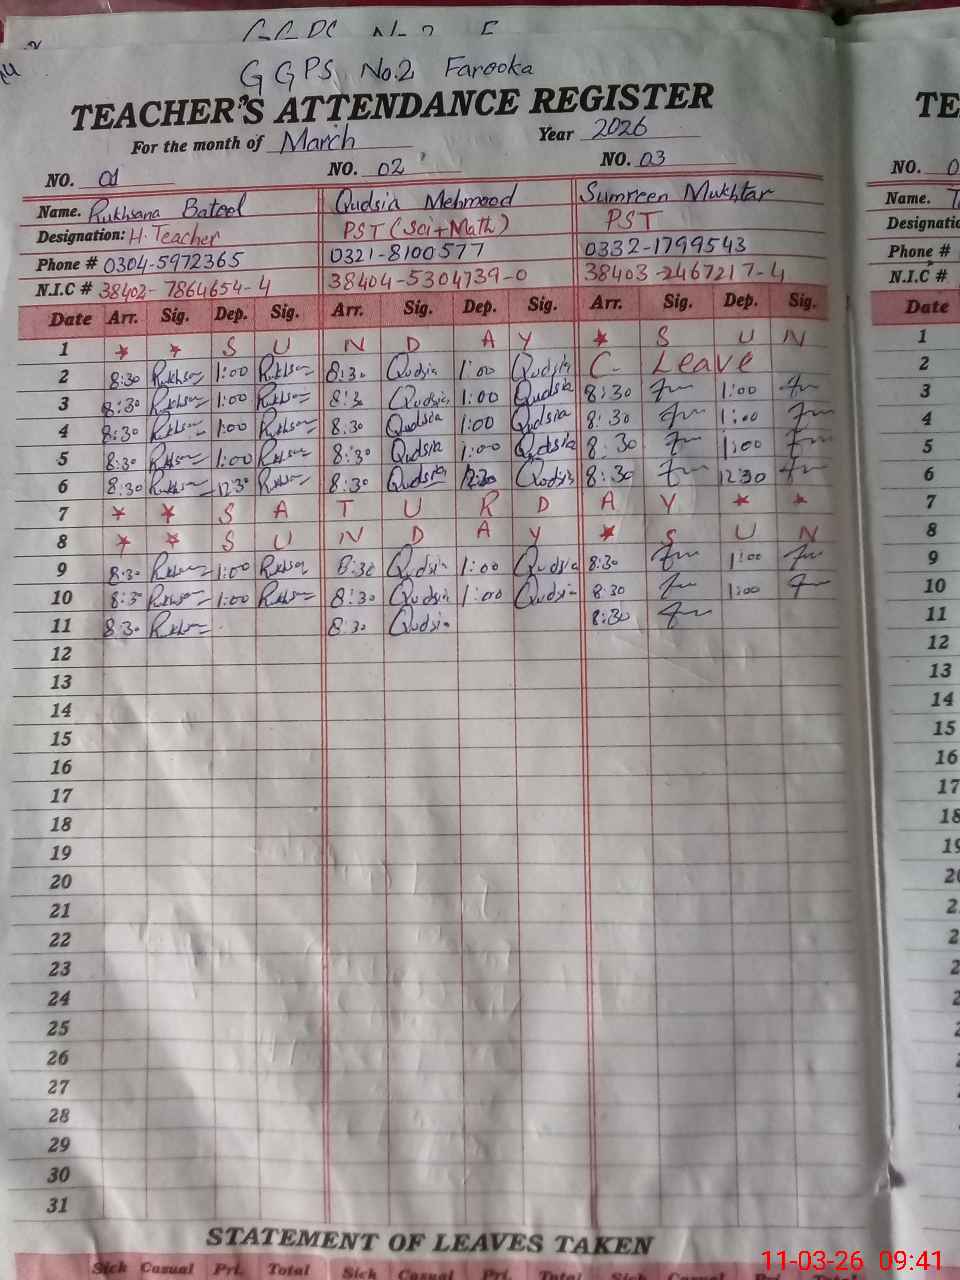 GGPS No.2 Farooka
TEACHER'S ATTENDANCE REGISTER
For the month of March Year 2026
NO. 01 NO. 02 NO. 03
Name. Rukhsana Batool Qudsia Mehmood Sumreen Mukhtar
Designation: H.Teacher PST (Sci+Math) PST
Phone # 0304-5972365 0321-8100577 0332-1799543
N.I.C # 38402-7864654-4 38404-5304739-0 38403-2467217-4
Date Arr. Sig. Dep. Sig. Arr. Sig. Dep. Sig. Arr. Sig. Dep. Sig.
1 * * S U N D A Y * S U N
2 8:30 1:00 8:30 Qudsia 1:00 Qudsia C- Leave
3 8:30 1:00 8:3 Qudsia 1:00 Qudsia 8:30 1:00
4 8:30 1:00 8:30 Qudsia 1:00 Qudsia 8:30 1:00
5 8:30 1:00 8:30 Qudsia 1:00 Qudsia 8:30 1:00
6 8:30 12:30 8:30 Qudsia 12:30 Qudsia 8:30 12:30
7 * * S A T U R D A Y * *
8 * * S U N D A Y * S U N
9 8:30 1:00 8:30 Qudsia 1:00 Qudsia 8:30 1:00
10 8:30 1:00 8:30 Qudsia 1:00 Qudsia 8:30 1:00
11 8:30 8:30 Qudsia 8:30
12
13
14
15
16
17
18
19
20
21
22
23
24
25
26
27
28
29
30
31
STATEMENT OF LEAVES TAKEN
Sick Casual Pri. Total Sick Casual Pri. Total Sick Casual Pri.
11-03-26 09:41
TE
NO.
Name.
Phone #
N.I.C #
Date
1
2
3
4
5
6
7
8
9
10
11
12
13
14
15
16
17